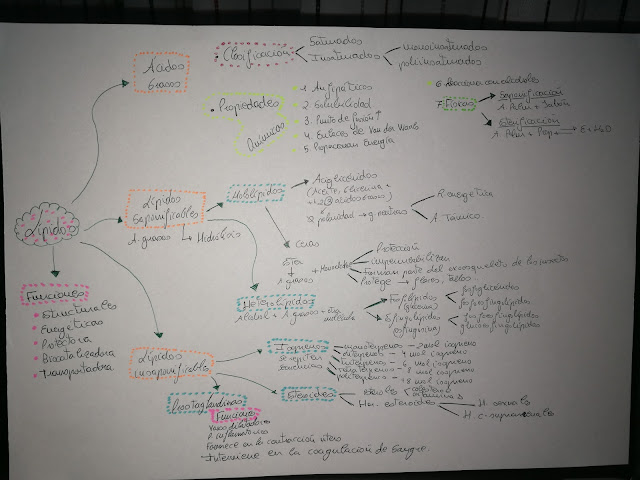 Ácidos
Grasos
• Clasificación
Saturados
Insaturados
monoinsaturados
poliinsaturados
• Propiedades
Químicas
1. Anfipáticos
2. Solubilidad
3. Punto de fusión ↑
4. Enlaces de Van der Waals
5. Proporcionan Energía
6. Reacciona con alcoholes
7. Físicas
Saponificación
Esterificación
Lípidos
Lípidos
Saponificables
A. grasos
Hidrólisis
Hololípidos
Acilglicéridos
(Aceite, Glicerina +
1, 2, 3 ácidos grasos)
R. energética
A. Térmico
Ceras
Ester
A. grasos
Protección
impermeabilizan
Forman parte del exoesqueleto de los insectos
Protege → flores, tallos.
Heterolípidos
Alcohol + A. grasos + otra
molécula
Fosfolípidos
(glicerina)
Esfingolípidos
esfingosina
fosfoglicéridos
fosfoesfingolípidos
glucoesfingolípidos
Funciones
* Estructurales
* Energéticas
* Protectora
* Biocatalizadora
* Transportadora
Lípidos
insaponificables
Isopreno
se repiten
monoterpenos - 2 mol isopreno
diterpenos - 4 mol isopreno
triterpenos - 6 mol isopreno
tetraterpenos - 8 mol isopreno
politerpenos - 18 mol isopreno
Esteroides
esteroles
colesterol
vitamina D
Hor. esteroideas
H. sexuales
H. c. suprarrenales
Prostaglandinas
Funciones
Vasodilatadores
P. inflamatorios
Favorece en la contracción útero
Interviene en la coagulación de sangre.